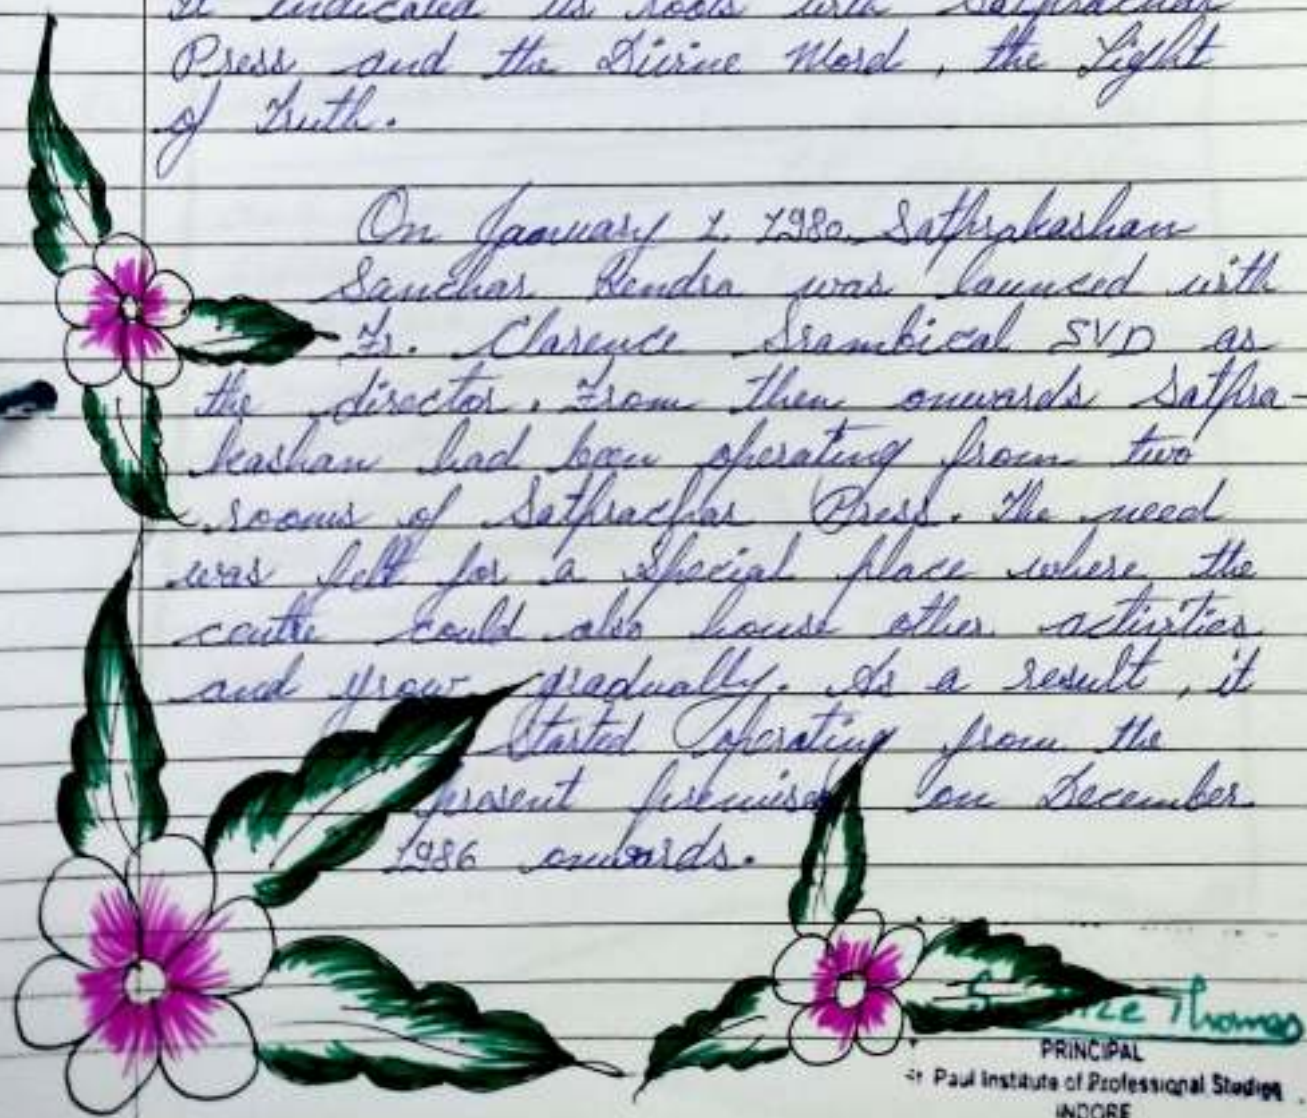 it indicated its roots with Satprachar
Press and the Divine Word, the Light
of Truth.
On January 1. 1980. Sathprakashan
Sanchar Kendra was launced with
Fr. Clarence Srambical SVD as
the director. From then onwards Satpra-
kashan had been operating from two
rooms of Satprachar Press. The need
was felt for a special place where the
centre could also house other activities
and grow gradually. As a result, it
started operating from the
present premises on December
1986 onwards.
Thomas
PRINCIPAL
Paul Institute of Professional Studies
INDORE